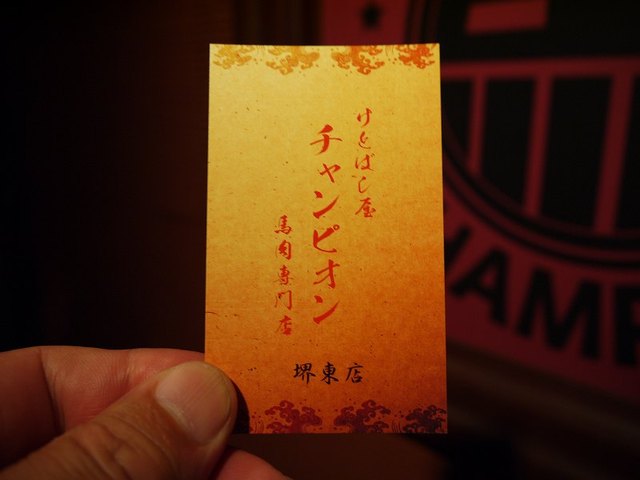 けとばし屋
チャンピオン
馬肉専門店
堺東店
HAMP